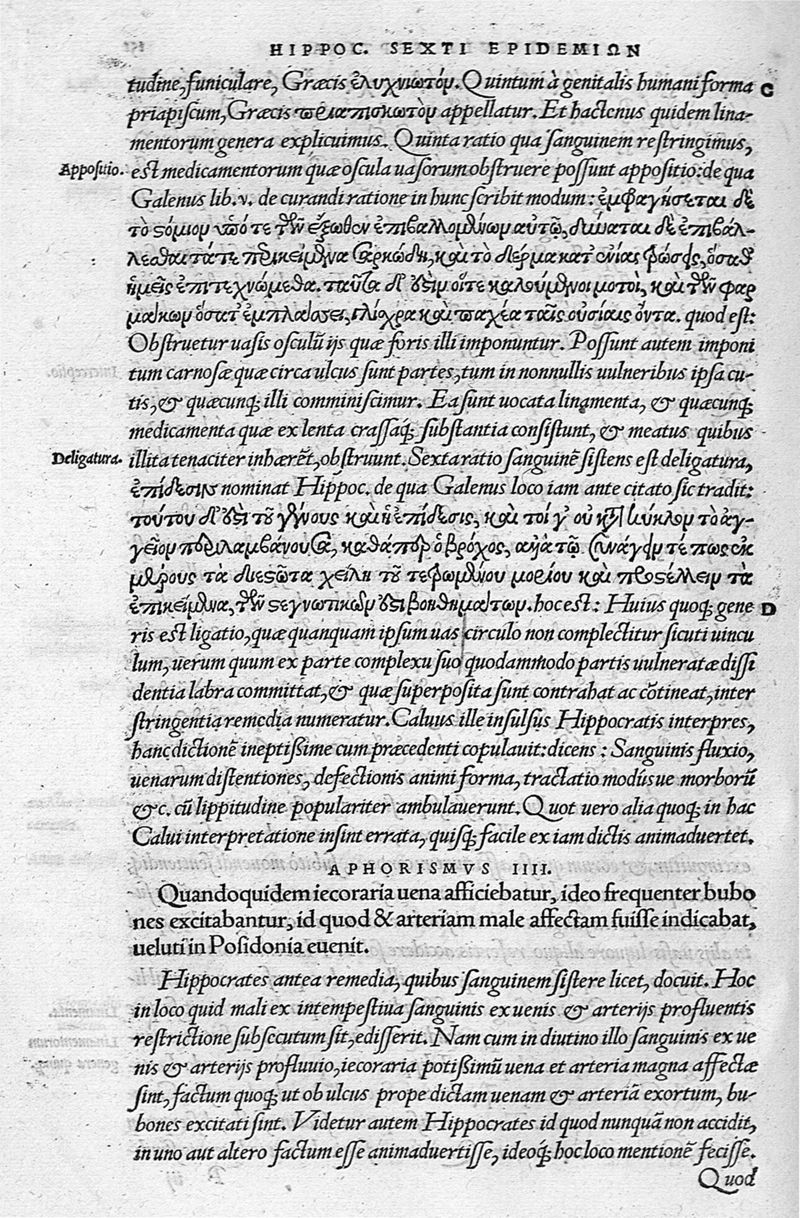 HIPPOC. SEXTI EPIDEMIΩN
tudine, funiculare, Græcis ἐλυχνιωτόν. Quintum à genitalis humani forma C
priapiscum, Græcis πριαπισκωτὸν appellatur. Et hactenus quidem lina-
mentorum genera explicuimus. Quinta ratio qua sanguinem restringimus,
Apposuio. est medicamentorum quæ oscula uasorum obstruere possunt appositio: de qua
Galenus lib. v. de curandi ratione in hunc scribit modum: ἐμφραγήσεται δὲ
τὸ στόμιον ὑπό τε τῶν ἔξωθεν ἐπιβαλλομένων αὐτῷ, δύναται δὲ ἐπιβάλ-
λεσθαι τά τε περικείμενα σαρκώδη, καὶ τὸ δέρμα κατ' ἐνίας τρώσεις, ὅσα θ'
ἡμεῖς ἐπιτεχνώμεθα. ταῦτα δ' ἐστὶν οἵ τε καλούμενοι μοτοὶ, καὶ τῶν φαρ
μάκων ὅσα τ' ἐμπλάττει, γλίσχρα καὶ παχέα ταῖς οὐσίαις ὄντα. quod est:
Obstruetur uasis osculũ ijs quæ foris illi imponuntur. Possunt autem imponi
tum carnosæ quæ circa ulcus sunt partes, tum in nonnullis uulneribus ipsa cu-
tis, & quæcunq; illi comminiscimur. Ea sunt uocata linamenta, & quæcunq;
medicamenta quæ ex lenta crassaq; substantia consistunt, & meatus quibus
Deligatura. illita tenaciter inhærẽt, obstruunt. Sexta ratio sanguinẽ sistens est deligatura,
ἐπίδεσιν nominat Hippoc. de qua Galenus loco iam ante citato sic tradit:
τούτου δ' ἐστὶ τοῦ γένους καὶ ἡ ἐπίδεσις, καὶ τοί γ' οὐ κατὰ κύκλον τὸ ἀγ-
γεῖον περιλαμβάνουσα, καθάπερ ὁ βρόχος, ἀλλὰ τῷ συνάγειν τέ πως ἐκ
μέρους τὰ διεστῶτα χείλη τοῦ τετρωμένου μορίου καὶ προστέλλειν τὰ
ἐπικείμενα, τῶν στεγνωτικῶν ἐστι βοηθημάτων. hoc est: Huius quoq; gene D
ris est ligatio, quæ quanquam ipsum uas circulo non complectitur sicuti uincu
lum, uerum quum ex parte complexu suo quodammodo partis uulneratæ dissi
dentia labra committat, & quæ superposita sunt contrahat ac cõtineat, inter
stringentia remedia numeratur. Caluus ille insulsus Hippocratis interpres,
hanc dictionẽ ineptißime cum præcedenti copulauit: dicens: Sanguinis fluxio,
uenarum distentiones, defectionis animi forma, tractatio modusue morborũ
&c. cũ lippitudine populariter ambulauerunt. Quot uero alia quoq; in hac
Calui interpretatione insint errata, quisq; facile ex iam dictis animaduertet.
APHORISMVS IIII.
Quandoquidem iecoraria uena afficiebatur, ideo frequenter bubo
nes excitabantur, id quod & arteriam male affectam fuisse indicabat,
ueluti in Posidonia euenit.
Hippocrates antea remedia, quibus sanguinem sistere licet, docuit. Hoc
in loco quid mali ex intempestiua sanguinis ex uenis & arterijs profluentis
restrictione subsecutum sit, edisserit. Nam cum in diutino illo sanguinis ex ue
nis & arterijs profluuio, iecoraria potißimũ uena et arteria magna affectæ
sint, factum quoq; ut ob ulcus prope dictam uenam & arteriã exortum, bu-
bones excitati sint. Videtur autem Hippocrates id quod nunquã non accidit,
in uno aut altero factum esse animaduertisse, ideoq́; hoc loco mentionẽ fecisse.
Quod